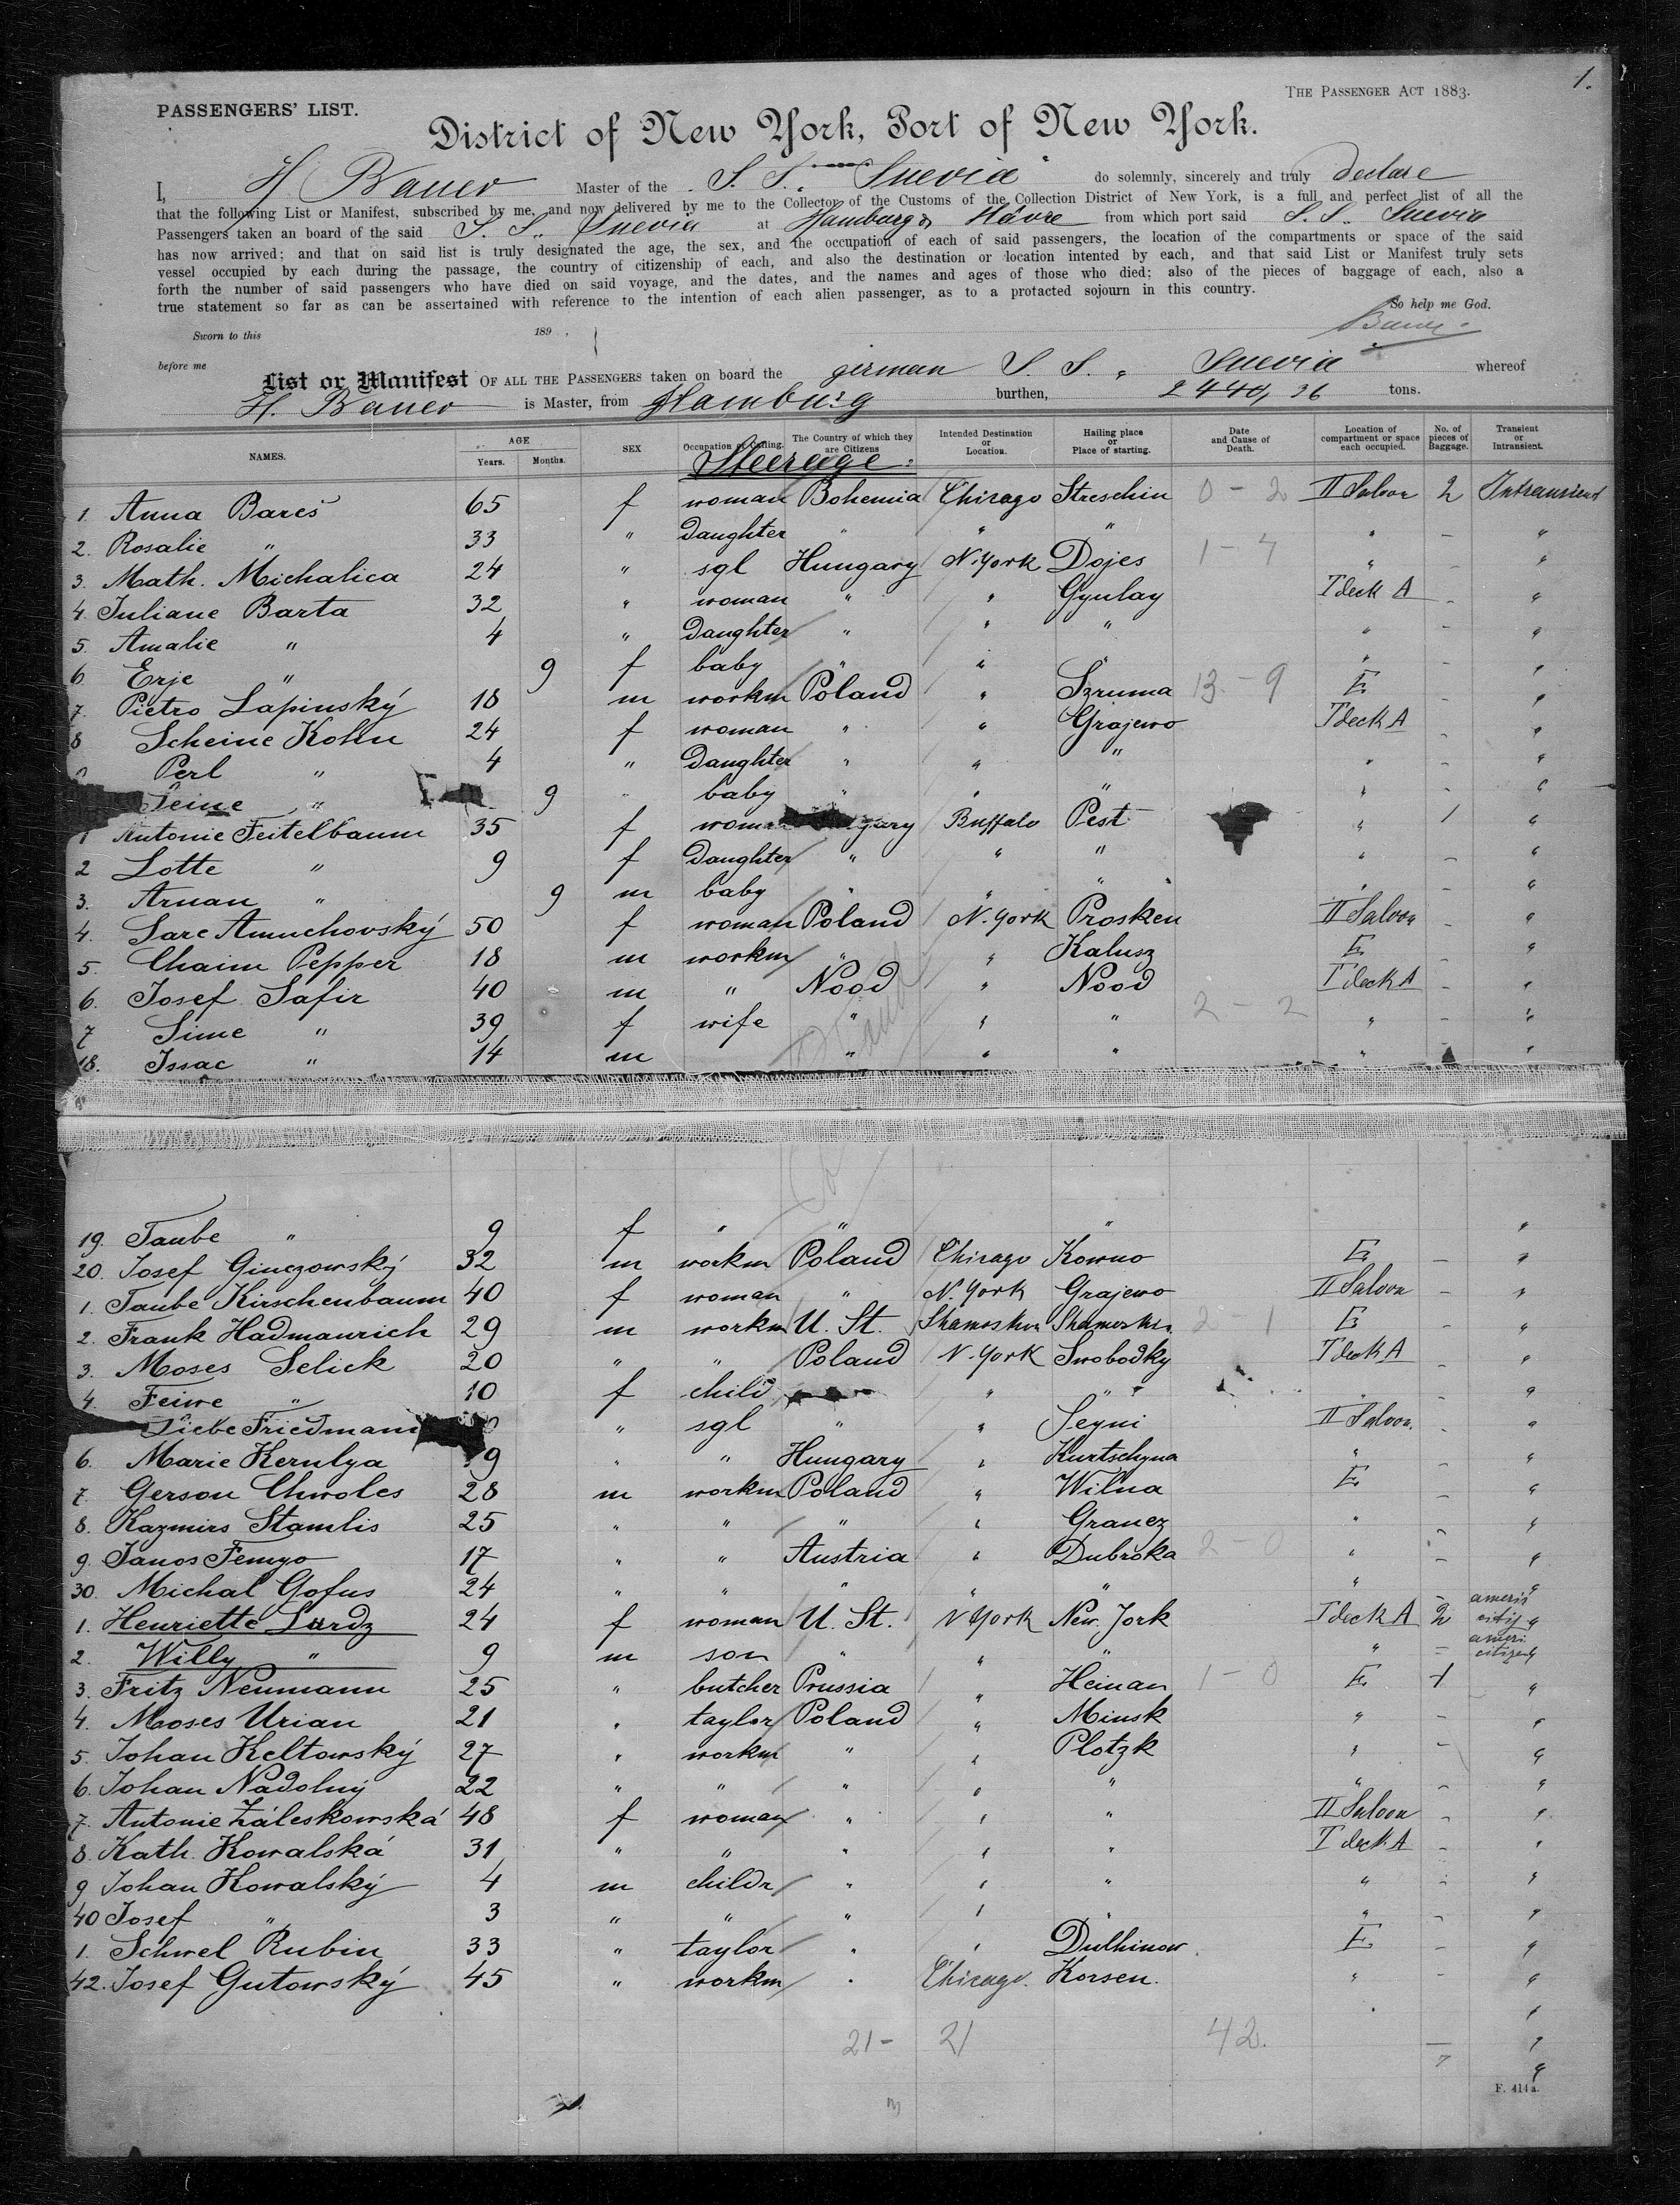 1.
PASSENGERS' LIST.
THE PASSENGER ACT 1883.
District of New York, Port of New York.
I, H Bauer Master of the S. S. Suevia do solemnly, sincerely and truly declare
that the following List or Manifest, subscribed by me, and now delivered by me to the Collector of the Customs of the Collection District of New York, is a full and perfect list of all the
Passengers taken an board of the said S. S. Suevia at Hamburg & Hâvre from which port said S. S. Suevia
has now arrived; and that on said list is truly designated the age, the sex, and the occupation of each of said passengers, the location of the compartments or space of the said
vessel occupied by each during the passage, the country of citizenship of each, and also the destination or location intented by each, and that said List or Manifest truly sets
forth the number of said passengers who have died on said voyage, and the dates, and the names and ages of those who died; also of the pieces of baggage of each, also a
true statement so far as can be assertained with reference to the intention of each alien passenger, as to a protacted sojourn in this country.
So help me God.
Sworn to this 189 .
Bauer.
before me
List or Manifest OF ALL THE PASSENGERS taken on board the german S. S. " Suevia whereof
H. Bauer is Master, from Hamburg burthen, 2440,36 tons.
NAMES. AGE Years. Months. SEX Occupation or Calling. The Country of which they are Citizens Intended Destination or Location. Hailing place or Place of starting. Date and Cause of Death. Location of compartment or space each occupied. No. of pieces of Baggage. Transient or Intransient.
Steerage:
1. Anna Bareš 65 f woman Bohemia Chicago Streschin 0-2 II Saloon 2 Intransient
2. Rosalie " 33 " Daughter " " " " - "
3. Math. Michalica 24 " sgl Hungary N.York Dojes 1-7 " - "
4. Juliane Barta 32 " woman " " Gyulay I deck A - "
5. Amalie " 4 " Daughter " " " " - "
6 Erje " 9 f baby " " " " - "
7. Pietro Lapinský 18 m workm Poland " Szruma 13-9 E - "
8 Scheine Kohn 24 f woman " " Grajewo I deck A - "
Perl " 4 " Daughter " " " " - "
Feine " 9 " baby " " " " "
1 Antonie Feitelbaum 35 f woman Buffalo Pest " 1 "
2 Lotte " 9 f Daughter " " " " - "
3. Arnan " 9 m baby " " " " - "
4. Sare Amuchovský 50 f woman Poland N.York Prosken II Saloon - "
5. Chaim Pepper 18 m workm " " Kalusz E - "
6. Josef Safir 40 m " Nood " Nood I deck A - "
7 Sime " 39 f wife " " " 2-2 " - "
18. Issac " 14 m " " " " "
19. Taube " 9 f " " " "
20. Josef Ginczowský 32 m workm Poland Chicago Kowno E - "
1. Taube Kirschenbaum 40 f woman " N.York Grajewo II Saloon - "
2. Frank Hadmanrich 29 m workm U. St. Shamokin Shamokin 2 1 E - "
3. Moses Selick 20 " " Poland N.York Swobodky I deck A - "
4. Feiwe " 10 f child " " " "
Liebe Friedmann " sgl " " Seyni II Saloon. - "
6. Marie Kerulya 9 " " Hungary " Kurtschyna " - "
7. Gerson Chwoles 28 m workm Poland " Wilna E - "
8. Kazmirs Stamlis 25 " " " " Granez " - "
9. Janos Femyo 17 " " Austria " Dubroka 2-0 " - "
30. Michal Gofus 24 " " " " " " - "
1. Henriette Lardz 24 f woman U. St. N York New Jork I deck A 2 ameri citiz
2. Willy " 9 m son " " " " - ameri. citizen
3. Fritz Neumann 25 " butcher Prussia " Heinan 1-0 E 1 "
4. Moses Urian 21 " taylor Poland " Minsk " - "
5. Johan Keltowský 27 " workm " " Plotzk " - "
6. Johan Nadolný 22 " " " " " " - "
7. Antonie Záleskowská 48 f woman " " " II Saloon - "
8. Kath. Kowalská 31 " " " " " I deck A - "
9 Johan Kowalský 4 m childr " " " " - "
40 Josef " 3 " " " " " " - "
1. Schwel Rubin 33 " taylor " " Dulhinow E - "
42. Josef Gutowský 45 " workm " Chicago. Korsen. " - "
21- 21 42. 7
F. 414a.